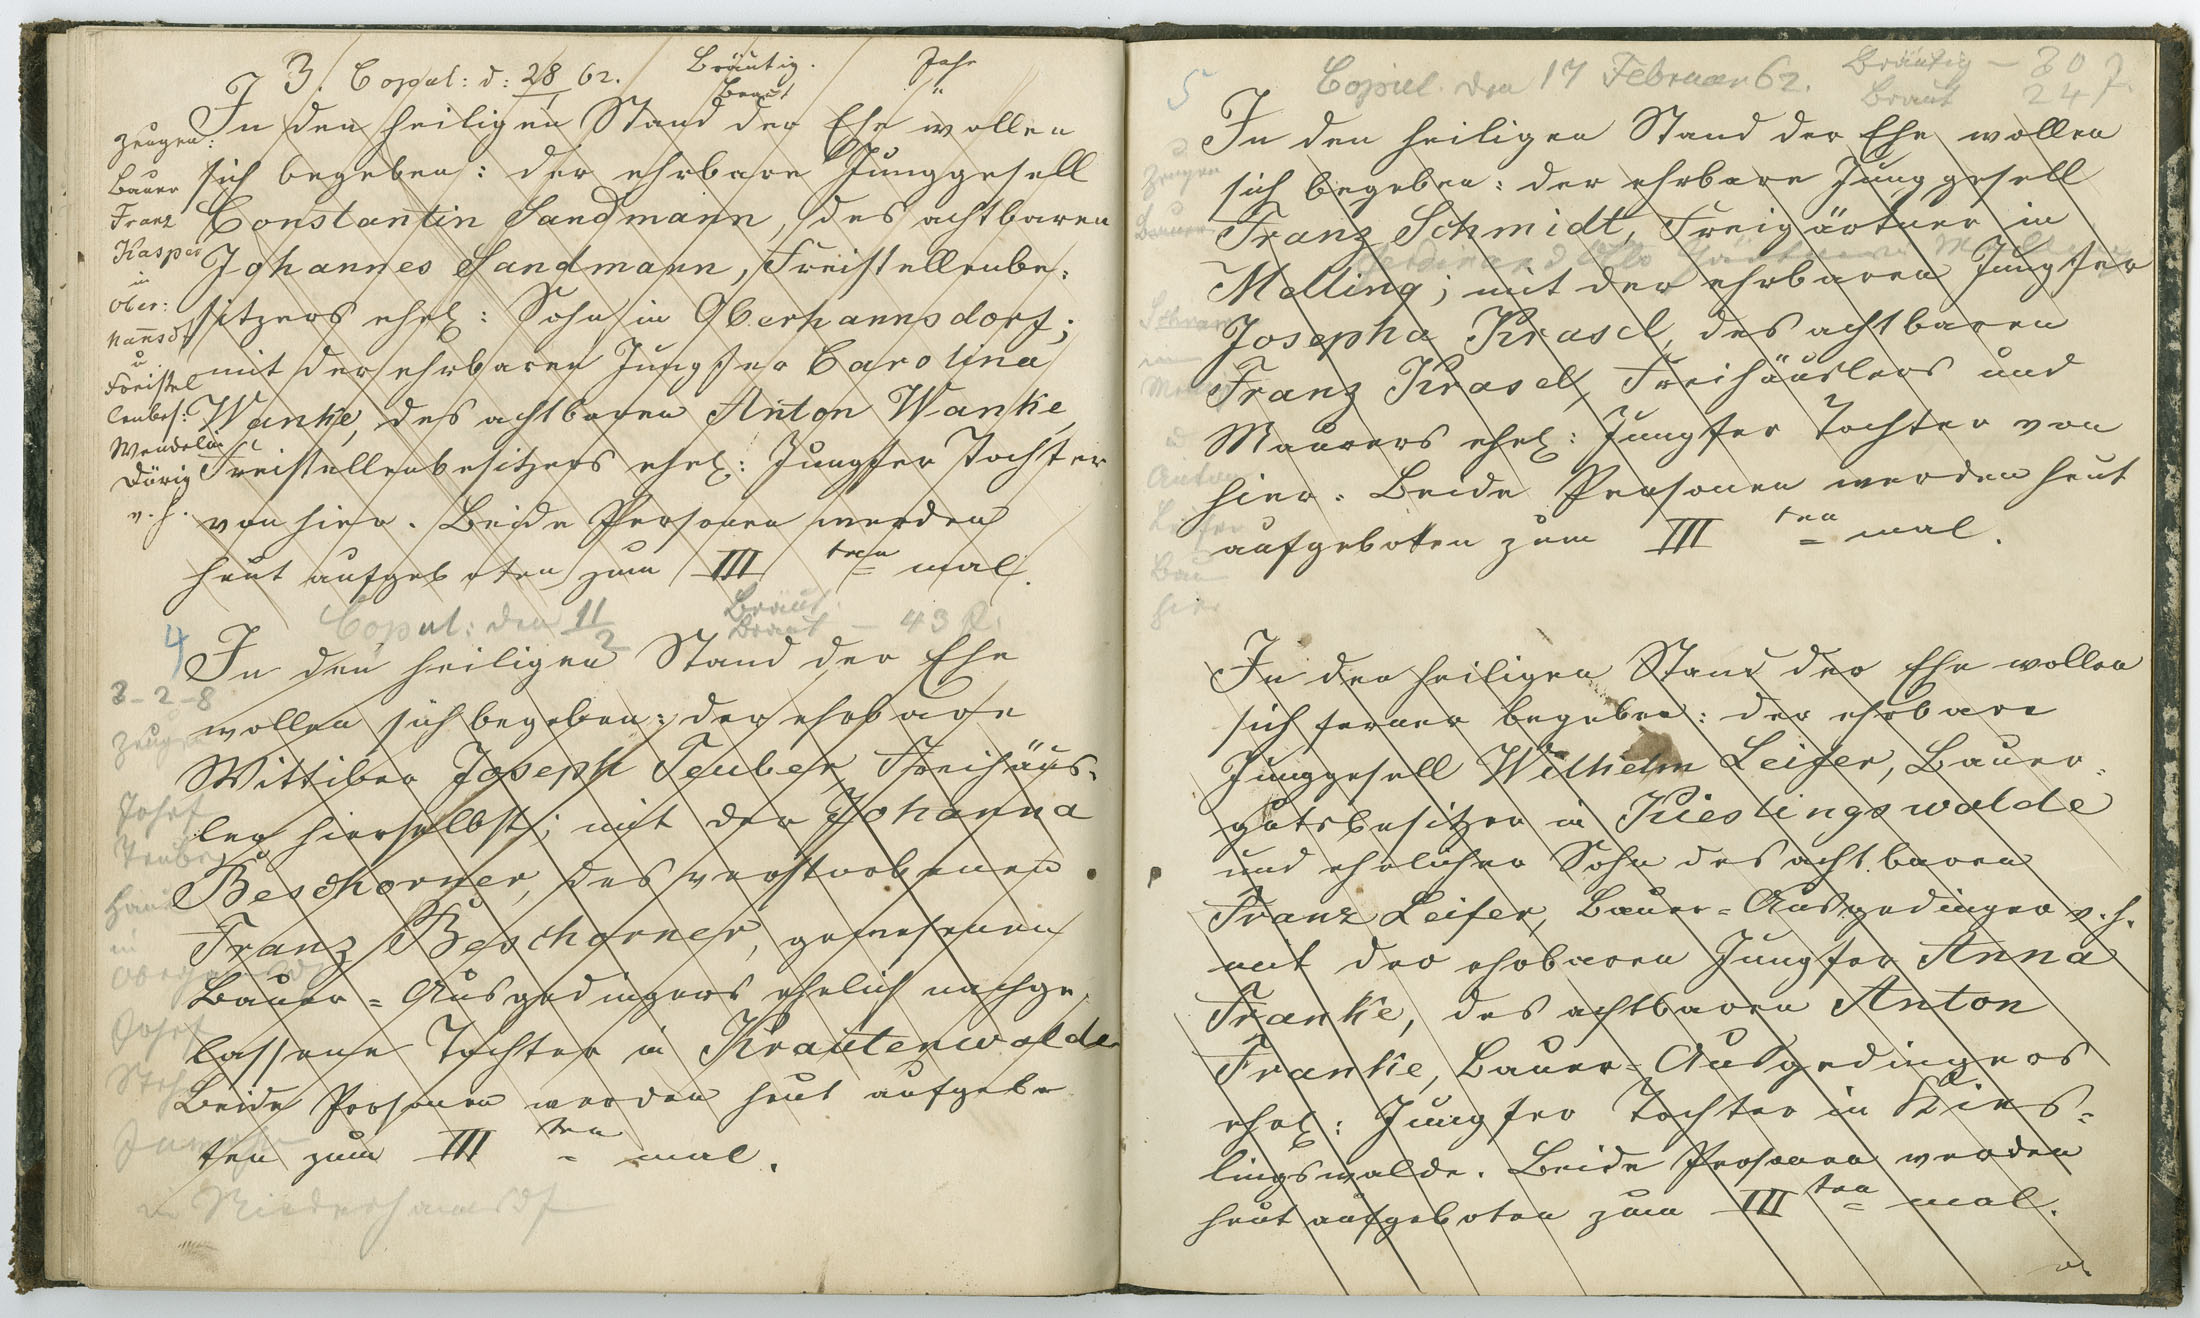 3. Copul: d: 28/1 62. Bräutig. Jahr
Braut "
In den heiligen Stand der Ehe wollen
sich begeben: der ehrbare Junggesell
Constantin Sandmann, des achtbaren
Johannes Sandmann, Freistellenbe-
sitzers ehel: Sohn in Oberhannsdorf;
mit der ehrbaren Jungfer Carolina
Wanke, des achtbaren Anton Wanke,
Freistellenbesitzers ehel: Jungfer Tochter
von hier. Beide Personen werden
heut aufgeboten zum III ten mal.
Zeugen:
Bauer
Franz
Kasper
in
Ober:
hannsdf
u.
Freistel
lenbes:
Wendelin
Dörig
v. h.
4 Copul: den 11/2 Bräut.
Braut — 43 J.
In den heiligen Stand der Ehe
wollen sich begeben: der ehrbare
Wittiber Joseph Teuber, Freihäus-
ler hierselbst; mit der Johanna
Beschorner, des verstorbenen
Franz Beschorner, gewesenen
Bauer-Ausgedingers ehelich nachge-
lassene Tochter in Krautenwalde
Beide Personen werden heut aufgebo
ten zum III ten mal.
3-2-8
Zeugen
Josef
Teuber
in
Josef
in Niederhannsdf
5 Copul. den 17 Februar 62. Bräutig — 30 J.
Braut 24 J.
In den heiligen Stand der Ehe wollen
sich begeben: der ehrbare Junggesell
Franz Schmidt, Freigärtner in
Melling; mit der ehrbaren Jungfer
Josepha Krasel, des achtbaren
Franz Krasel, Freihäuslers und
Maurers ehel: Jungfer Tochter von
hier. Beide Personen werden heut
aufgeboten zum III ten mal.
Zeugen
Bauer
in
Anton
hier
In den heiligen Stand der Ehe wollen
sich ferner begeben: der ehrbare
Junggesell Wilhelm Leifer, Bauer-
gutsbesitzer in Kieslingswalde
und ehelicher Sohn des achtbaren
Franz Leifer, Bauer-Ausgedinger v. h.
mit der ehrbaren Jungfer Anna
Franke, des achtbaren Anton
Franke, Bauer-Ausgedingers
ehel: Jungfer Tochter in Kies-
lingswalde. Beide Personen werden
heut aufgeboten zum III ten mal.